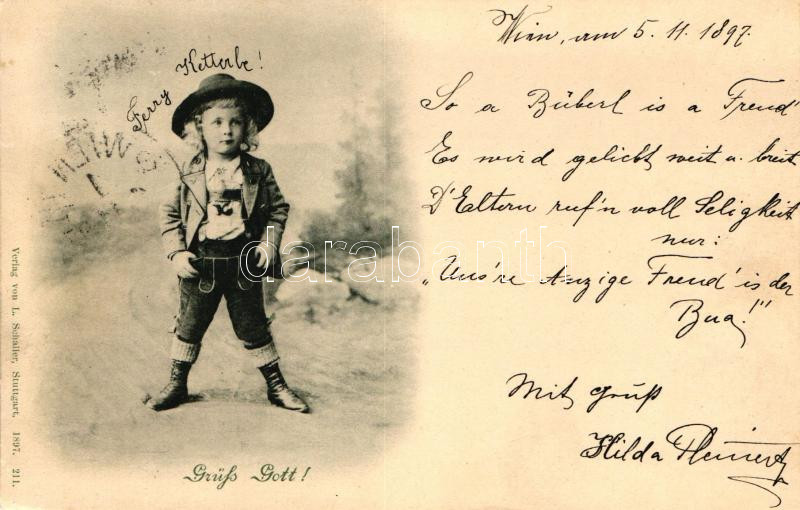 Wien, am 5. 11. 1897.
Ferry Ketterbe!
So a Büberl is a Freud'
Es wird geliebt weit u. breit
D'Eltern ruf'n voll Seligkeit
nur:
„Uns're Anzige Freud' is der
Bua!"
Mit Gruß
Hilda
Grüß Gott!
Verlag von L. Schaller, Stuttgart, 1897. 211.
WIEN
darabanth